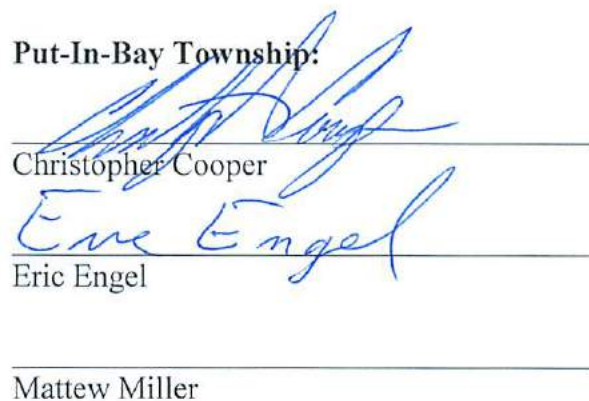 Put-In-Bay Township:
Christopher Cooper
Eric Engel
Eric Engel
Mattew Miller